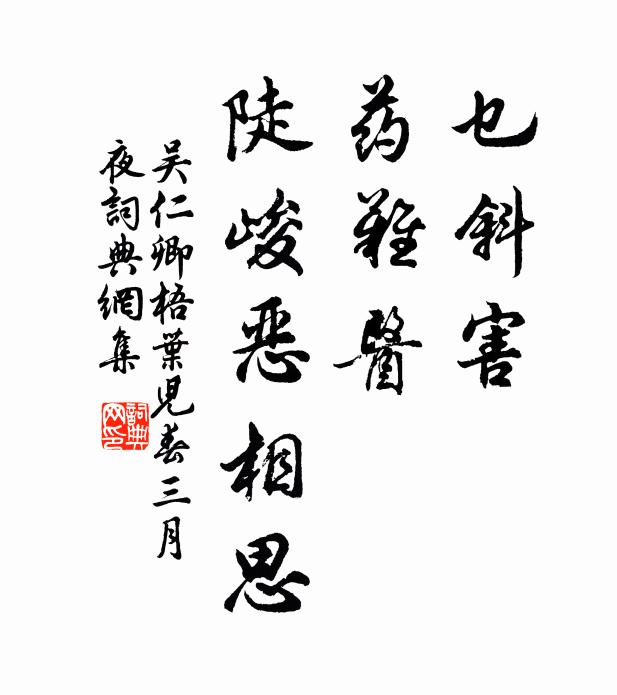 乜斜害
药難醫
陡峻恶相思
吴仁卿梧葉児春三月
夜詞典網集
詞典网印